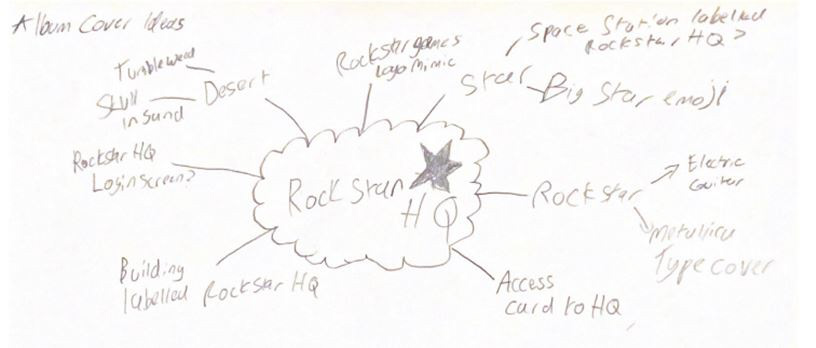 Album Cover Ideas
Tumbleweed
Skull
in Sand
Desert
Rockstar games
logo mimic
Star
Space Station labelled
Rockstar HQ?
Big Star emoji
Rockstar HQ
Login screen?
Rock Star
HQ
Rockstar
Electric
Guitar
Metallica
Type cover
Building
labelled Rockstar HQ
Access
card to HQ